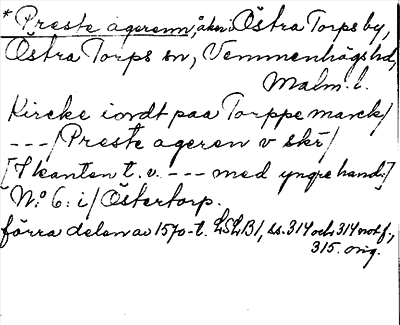 * Preste agerenn, åker i Östra Torps by,
Östra Torps sn, Vemmenhögs hd,
Malm. l.
Kircke iordt paa Torppe marck/
---/Preste ageren v skr/
[I kanten t.v. --- med yngre hand:]
N:o 6: i/Östertorp.
förra delen av 1570-t. LSLB1, ss. 314 och 314 not f,
315. orig.